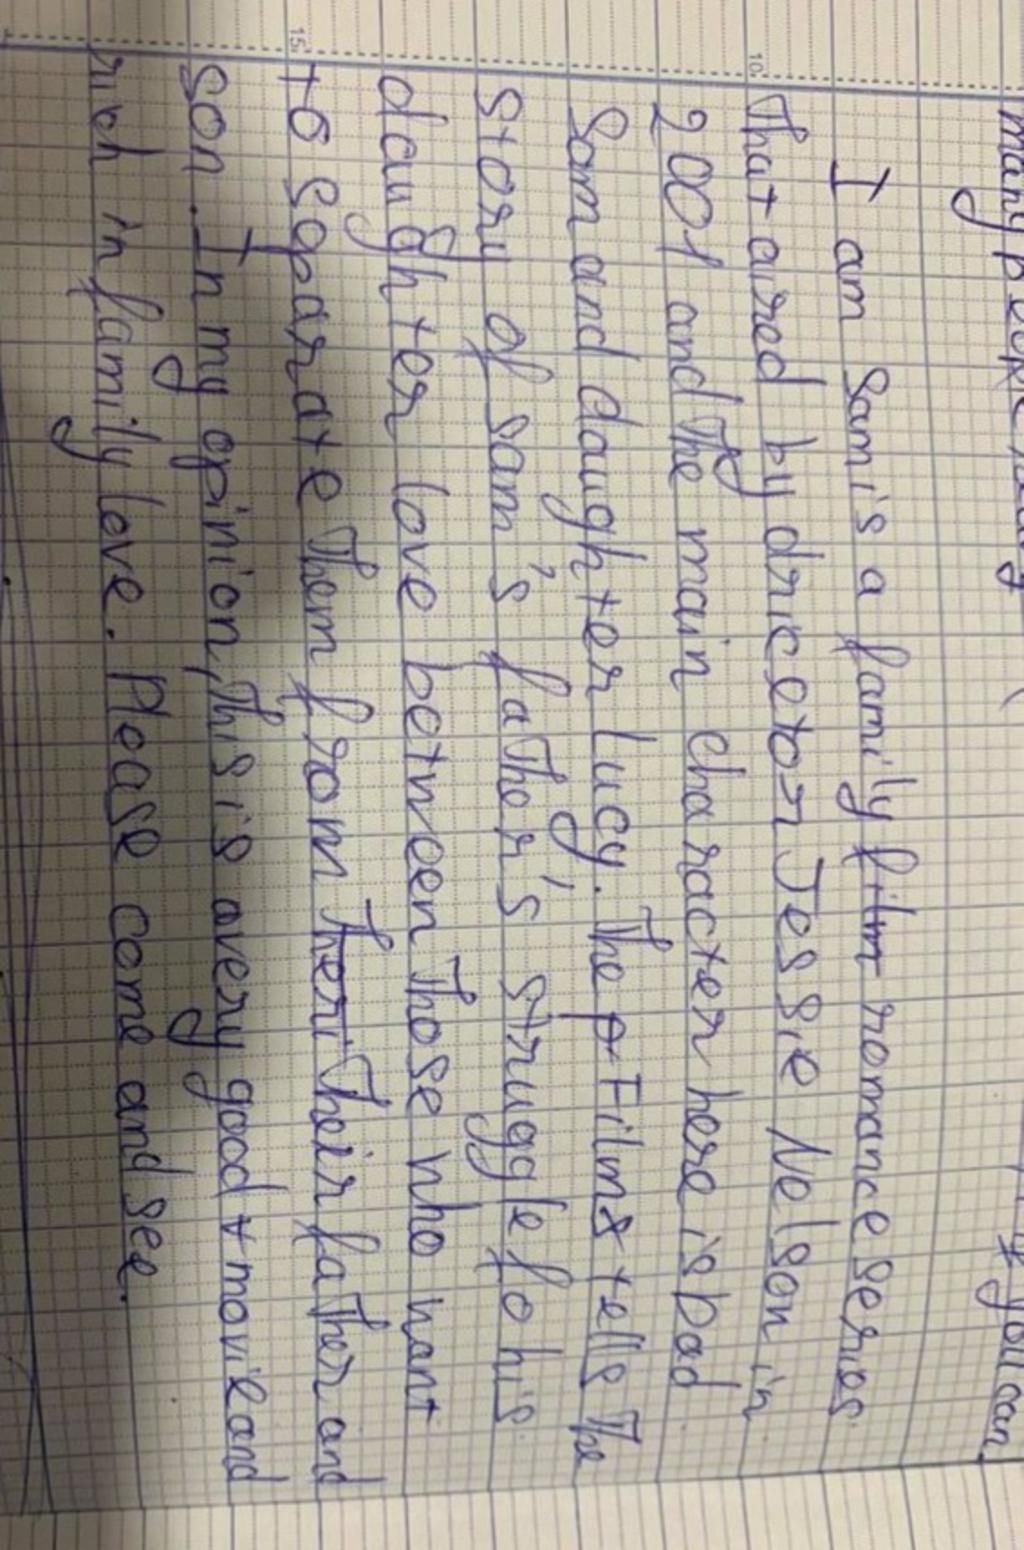 many people
if you can.
I am Sam is a family film romance series
That aired by driceton Jessie Nelson in
2001 and The main character here is Dad
Sam and daughter Lucy. The Films tells The
story of Sam's father's struggle fo his
daughter love between Those who want
to separate Them from Their father and
son. In my opinion, This is avery good movie and
rich in family love. Please come and see.
10
15